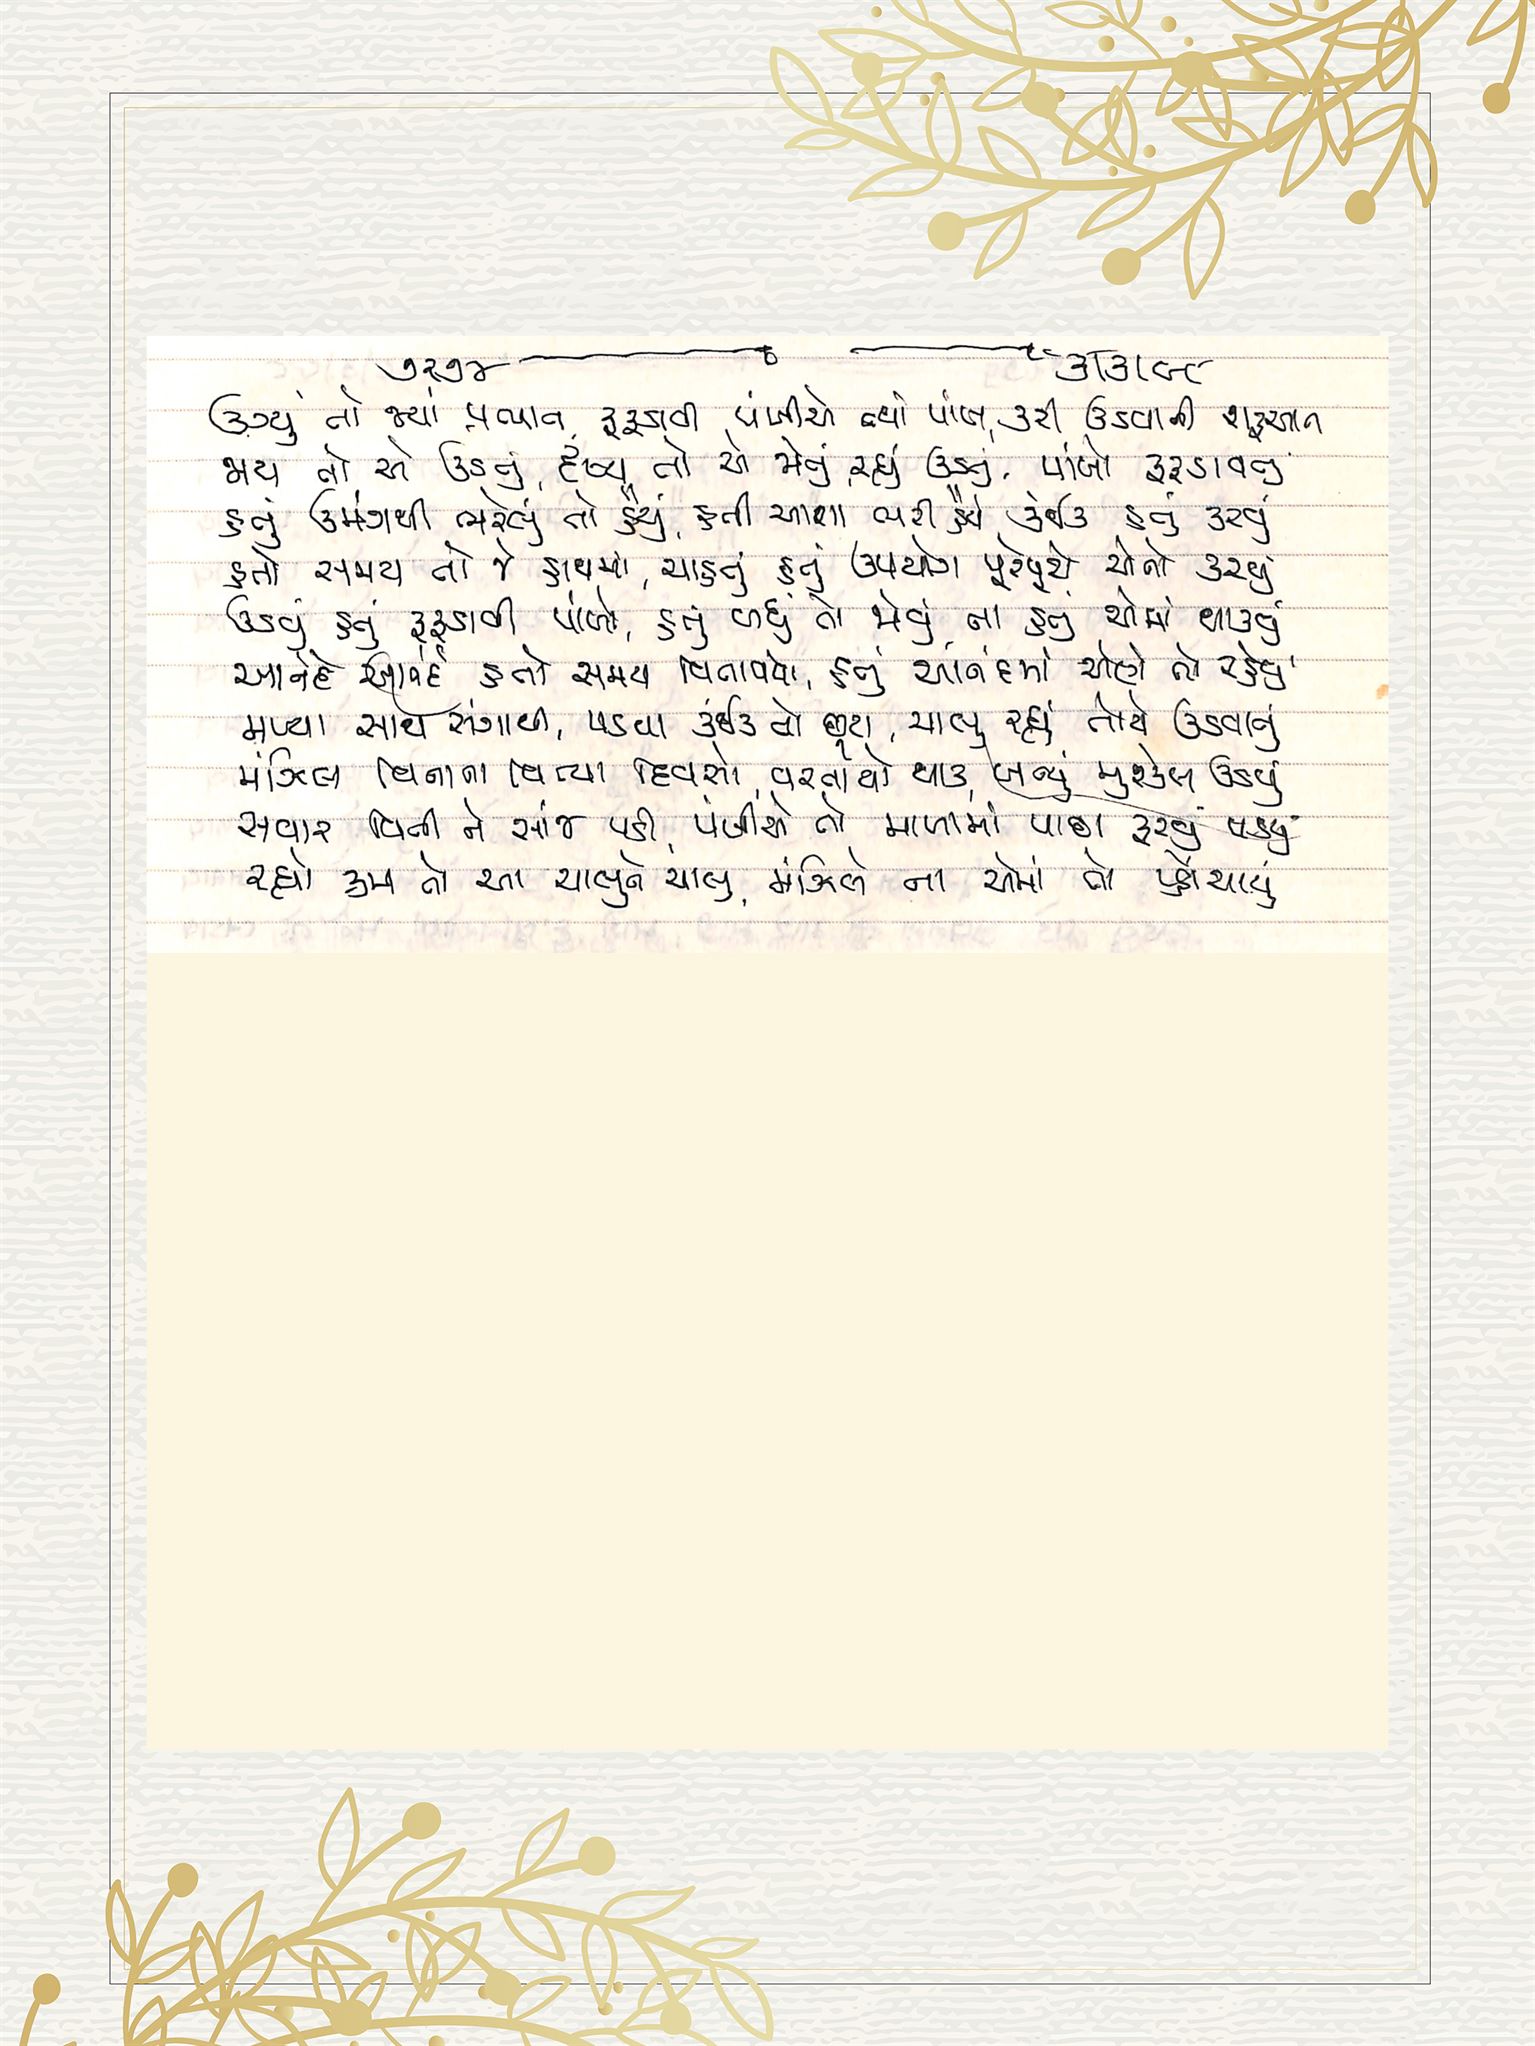 ૭૨૭૪
ઉગ્યું તો જ્યાં પ્રભાત, ફફડાવી પંખીએ ત્યાં પાંખ, કરી ઉડવાની શરૂઆત
જાય તો એ ઉડતું, દૃશ્ય તો એ જોતું રહ્યું ઉડતું, પાંખો ફફડાવતું
હતું ઉમંગથી ભરેલું તો હૈયું, હતી આશા ભરી હૈયે કંઈક હતું કરવું
હતો સમય તો જે હાથમાં, ચાહતું હતું ઉપયોગ પૂરેપૂરો એનો કરવું
ઉડવું હતું ફફડાવી પાંખો, હતું બધું તો જોવું, ના હતું એમાં થાકવું
આનંદે આનંદે હતો સમય વિતાવવો, હતું આનંદમાં એણે તો રહેવું
મળ્યા સાથ સંગાથી, પડયા કંઈક તો છૂટા, ચાલુ રહ્યું તોયે ઉડવાનું
મંઝિલ વિનાના વિત્યા દિવસો, વરતાયો થાક, બન્યું મુશ્કેલ ઉડવું
સવાર વિતી ને સાંજ પડી, પંખીએ તો માળામાં પાછા ફરવું પડયું
રહ્યો ક્રમ તો આ ચાલુને ચાલુ, મંઝિલે ના એમાં તો પહોંચાયું